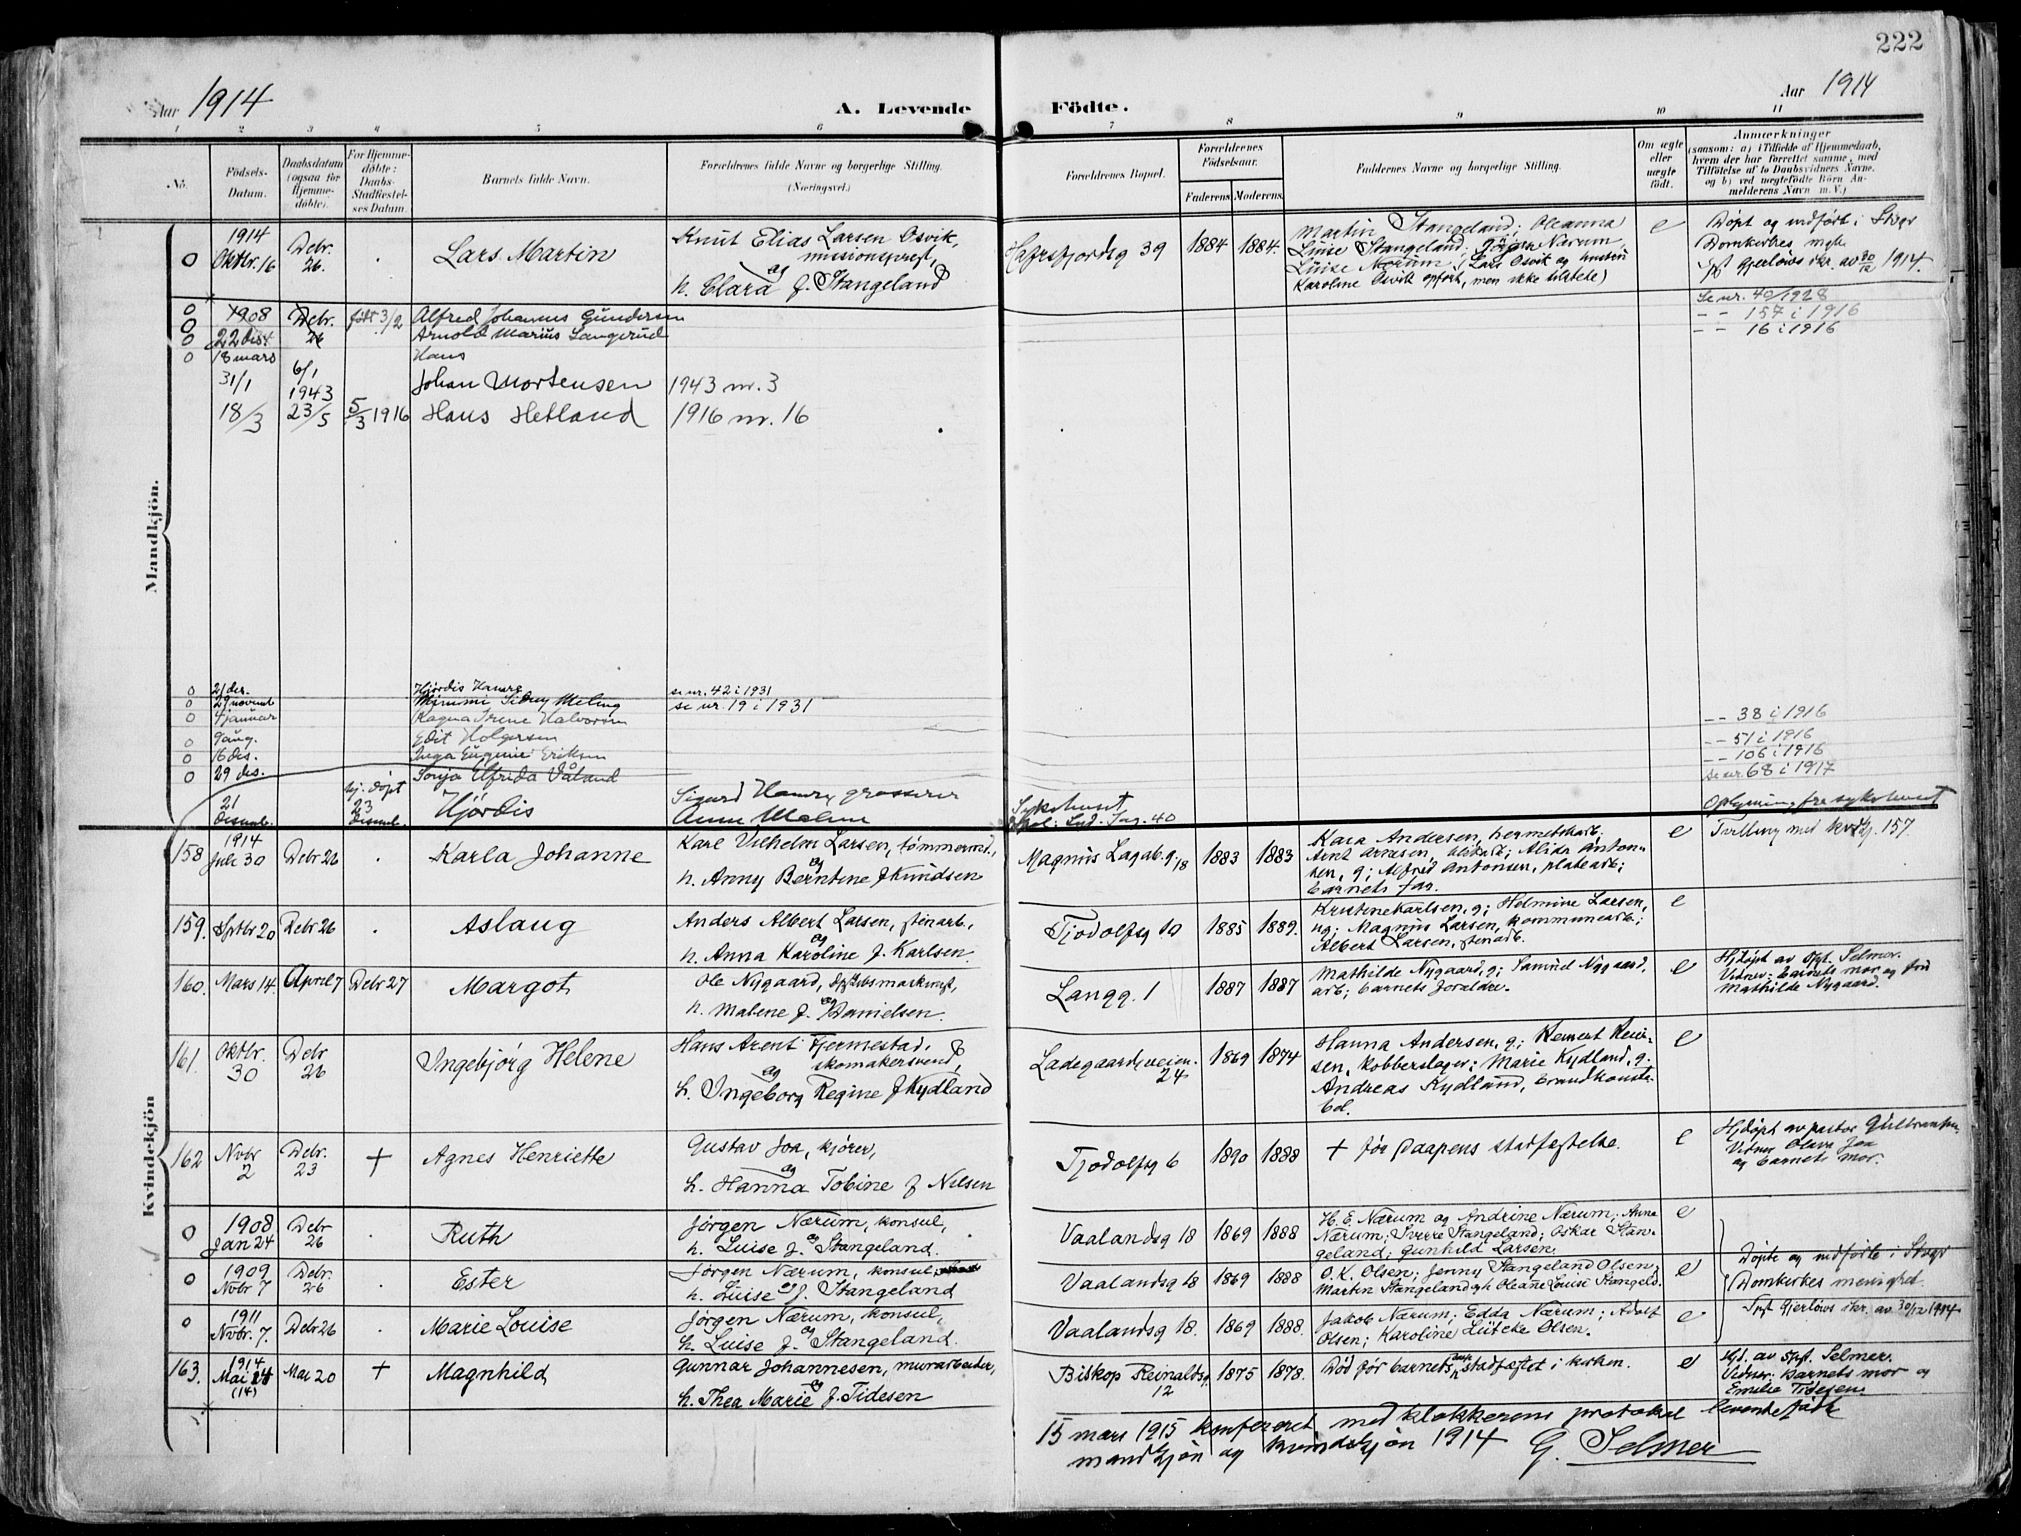 222
Aar 1914
A. Levende
Födte.
Aar 1914
1 2 3 4 5 6 7 8 9 10 11
No.
Födsels-
Datum.
Daabsdatum
(ogsaa for
Hjemme-
döbte).
For Hjemme-
döbte:
Daabs-
Stadfæstel-
ses Datum
Barnets fulde Navn.
Forældrenes fulde Navne og borgerlige Stilling.
(Næringsvei.)
Forældrenes Bopæl.
Forældrenes
Födselsaar.
Faderens Moderens
Faddernes Navne og borgerlige Stilling.
Om ægte
eller
uægte
födt.
Anmærkninger
(saasom: a) i Tilfælde af Hjemmedaab,
hvem der har forrettet samme, med
Tilföielse af to Daabsvidners Navne,
og b) ved uægtefödte Börn An-
melderens Navn m. V.)
Mandkjön.
0 1914 Oktbr. 16 Debr. 26. . Lars Martin
Knut Elias Larsen Osvik,
missionsprest,
og
h. Clara f. Stangeland
Hafrsfjordsg 39 1884 1884.
Martin Stangeland; Oleanna
Luise Stangeland; Jörgen Nærum,
Luise Nærum (Lars Osvik og hustru
Karoline Osvik opført, men ikke tilstede)
e
Døpt og indført i Stvgr
Domkirkes mgh.
Spr Gjerløws skr. av 30/12 1914.
0 1908 Debr. 26 født 3/2 Alfred Johannes Gundersen Se nr. 40/1928
0 22 des. Arnold Marius Langerud -- 157 i 1916
0 18 mars Hans -- 16 i 1916
31/1 6/1 1943 Johan Mortensen 1943 nr. 3
18/3 23/5 5/3 1916 Hans Hetland 1916 nr. 16
0 21 des. Hjørdis Hamre se nr. 42 i 1931
0 29 novemb Mimmi Sidny Meling se nr. 19 i 1931
0 4 januar Ragna Irene Halvorsen -- 38 i 1916
0 9 aug. Edit Holgersen -- 51 i 1916
0 16 des. Inga Eugenie Eriksen -- 106 i 1916
0 29 des. Sonja Elfrida Våland se nr 68 i 1917
21 Desemb. hj. døpt 23 Desemb. Hjördis
Sigurd Hamre grosserer
Anna Malene
Sykehuset,
40
Oplysning fra sykehuset
Kvindekjön
158 1914 Juli 30 Debr 26 . Karla Johanne
Karl Vilhelm Larsen, tømmermd.,
og
h. Anny Berntine f Knudsen
Magnus Lagab. g. 18 1883 1883
Kara Andersen, hermetikarb.
Arnt Arnesen, blikarb; Alida Anton-
sen, g; Alfred Antonsen, platearb;
barnets far.
e
Tvilling med kvkj. 157.
159. Sptbr 20 Debr 26 . Aslaug
Anders Albert Larsen, stenarb.,
og
h. Anna Karoline f. Karlsen.
Tjodolfsg 10 1885 1889.
Kristine Karlsen, g; Helmine Larsen,
ug; Magnus Larsen, kommunearb;
Albert Larsen, stenarb.
e
160. Mars 14. April 7 Debr 27 Margot
Ole Nygaard,
og
h. Malene f. Danielsen.
Langg. 1 1887 1887
Mathilde Nygaard, g; Samuel Nygaard,
arb; barnets foraldre.
e
Hjdøpt av spr. Selmer.
Vidner: barnets mor og fru
Mathilde Nygaard.
161. Oktbr. 30 Debr 26 Ingebjörg Helene
Hans Arent Fjermestad,
skomakersvend,
og
h. Ingeborg Regine f Kydland
Ladegaardsveien 24 1869 1874
Hanna Andersen, g;
sen, kobberslager; Marie Kydland, g.
Andreas Kydland, brandkonsta-
bel.
e
162 Nvbr 2 Debr. 23 + Agnes Henriette
Gustav Joa, kjører,
og
h. Hanna Tobine f Nilsen
Tjodolfsg 6 1890 1888
+ før daapens stadfestelse.
e
Hjdøpt av pastor Gulbransen.
Vidner Olava Joa
og barnets mor.
0 1908 Jan 24 Debr 26 . Ruth
Jørgen Nærum, konsul,
og
h. Luise f. Stangeland.
Vaalandsg 18 1869 1888
H. E. Nærum og Andrine Nærum; Anna
Nærum; Sverre Stangeland; Oskar Stan-
geland; Gunhild Larsen
e
0 1909 Nvbr 7 Debr. 26 . Ester
Jørgen Nærum, konsul
og
h. Luise f. Stangeland
Vaalandsg 18 1869 1888
O. K. Olsen; Jenny Stangeland Olsen;
Martin Stangeland gh Oleane Louise Stangeld.
e
Døpte og indførte i Stvgr
Domkirkes menighet.
Spr Gjerløws skr. av 30/12 1914
0 1911 Nvbr. 7. Debr 26 . Marie Louise
Jørgen Nærum, konsul,
og
h. Luise f. Stangeland.
Vaalandsg 18. 1869 1888.
Jakob Nærum; Edda Nærum; Adolf
Olsen; Karoline Lütcke Olsen.
e
163. 1914 Mai 14 (14) Mai 20 + Magnhild
Gunnar Johannesen, murarbeider,
og
h. Thea Marie f. Tidesen
Biskop Reinaldsg. 12 1875 1878.
Død før barnets daap stadfæstet i kirken.
e
Hjd. av spr. Selmer.
Vidner: barnets mor og
Emilie Tidesen
15 mars 1915 konfereret med klokkerens protokol levendefødte
mandkjøn og kvindekjøn 1914 G. Selmer